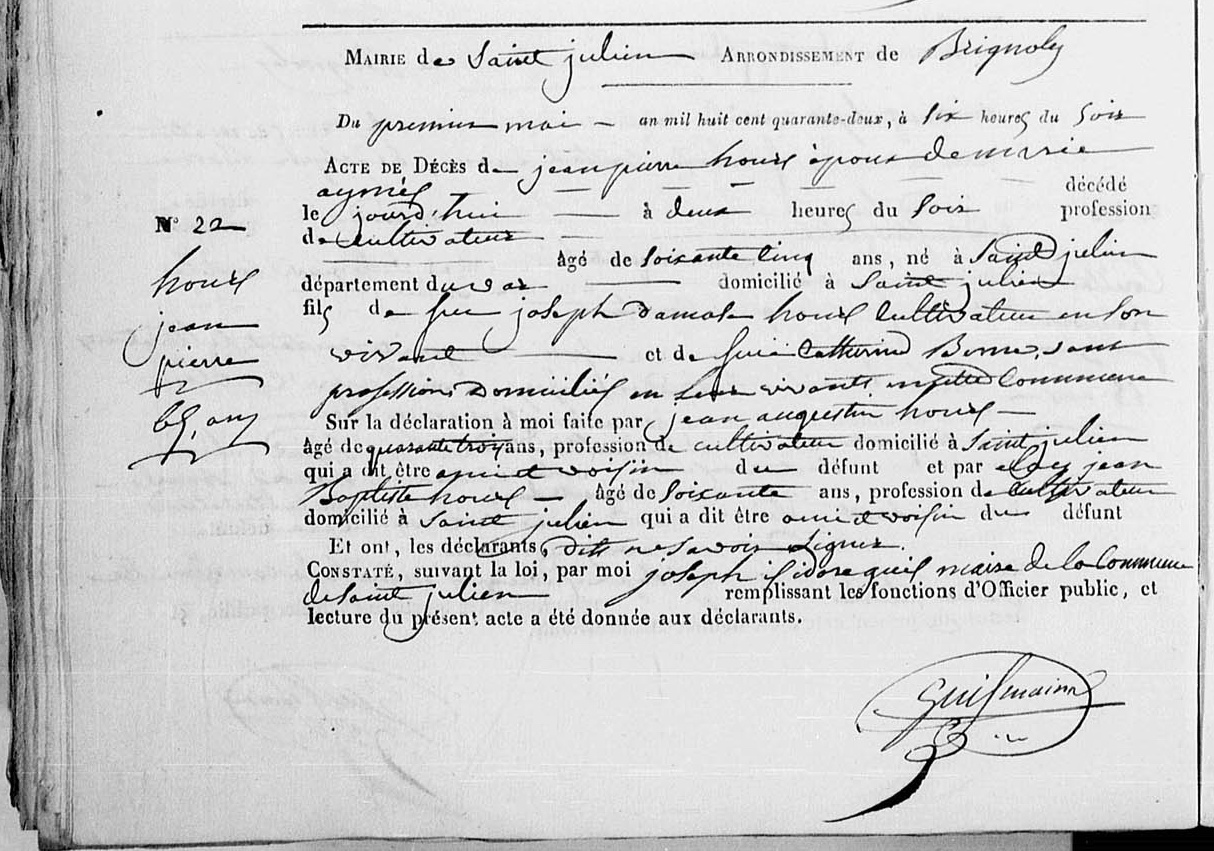 MAIRIE de Saint julien ARRONDISSEMENT de Brignoles
Du premier mai an mil huit cent quarante-deux, à six heures du soir
ACTE DE DÉCÈS de jean pierre houx époux de marie
aymès décédé
le jourd'hui à deux heures du soir profession
de cultivateur
âgé de soixante cinq ans, né à Saint julien
département du var domicilié à Saint julien
fils de feu joseph damase houx cultivateur en son
vivant et de feue Catherine Bonne, sans
profession domiciliés en leur vivants en cette commune
Sur la déclaration à moi faite par jean augustin houx
âgé de quarante trois ans, profession de cultivateur domicilié à Saint julien
qui a dit être ami et voisin du défunt et par eloy jean
Baptiste houx âgé de soixante ans, profession de cultivateur
domicilié à Saint julien qui a dit être ami et voisin du défunt
Et ont, les déclarants, dit ne savoir signer.
CONSTATÉ, suivant la loi, par moi joseph isidore guis maire de la commune
de saint julien remplissant les fonctions d'Officier public, et
lecture du présent acte a été donnée aux déclarants.
N° 22
houx
jean
pierre
65, ans
Guis maire